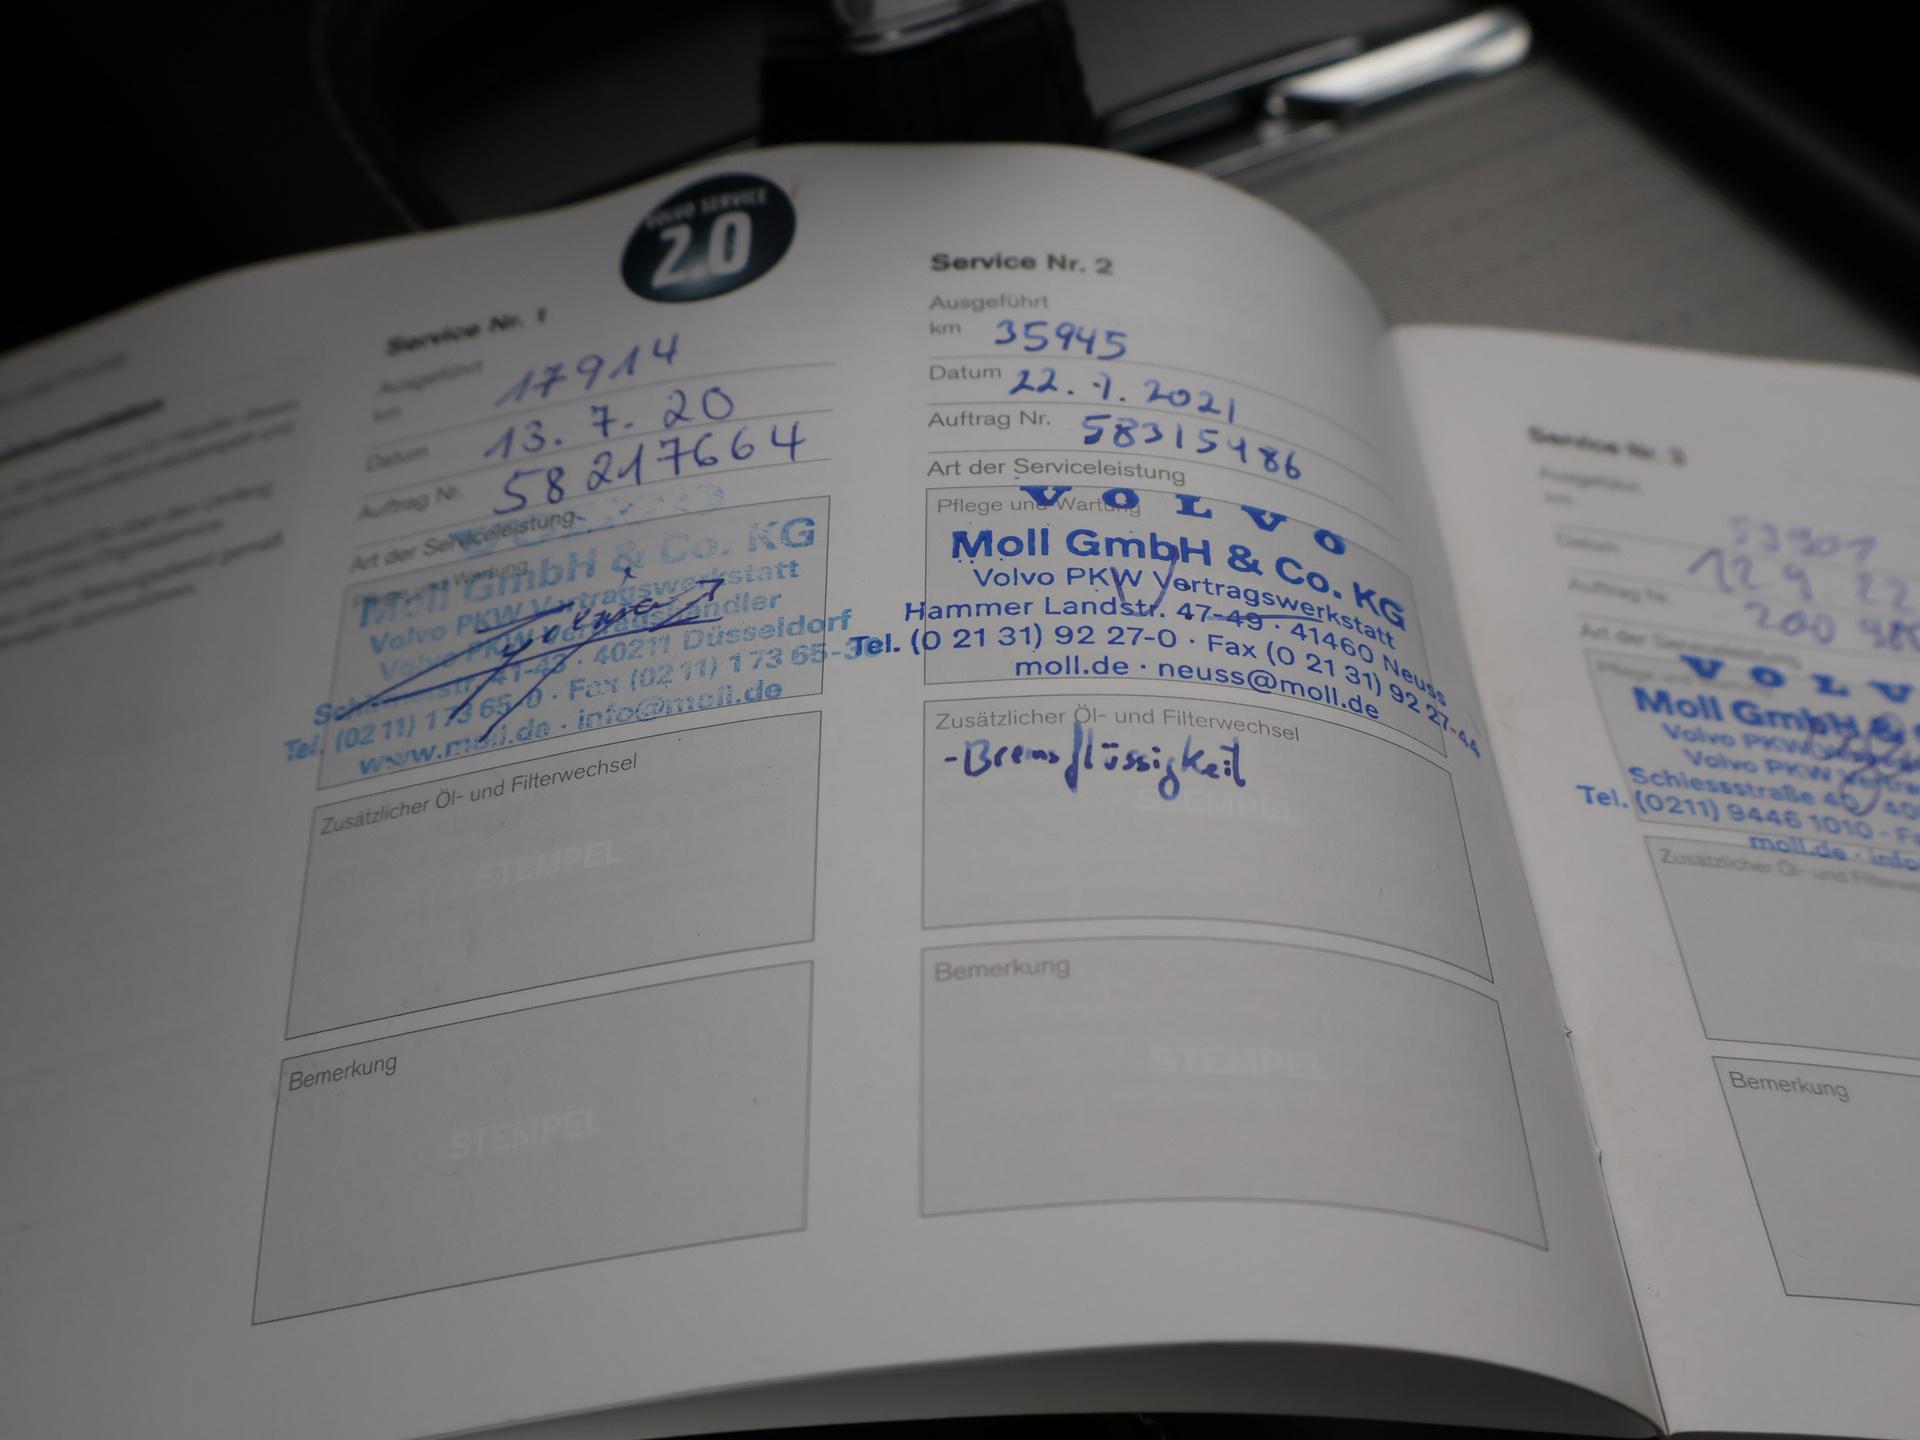 VOLVO SERVICE
2.0
Service Nr. 1
Ausgeführt
km 17914
Datum 13. 7. 20
Auftrag Nr. 58217664
Art der Serviceleistung
Moll GmbH & Co. KG
Volvo PKW Vertragswerkstatt
Volvo PKW Vertragshändler
41-43 · 40211 Düsseldorf
Tel. (02 11) 1 73 65-0 · Fax (02 11) 1 73 65-3
www.moll.de · info@moll.de
Zusätzlicher Öl- und Filterwechsel
STEMPEL
Bemerkung
STEMPEL
Service Nr. 2
Ausgeführt
km 35945
Datum 22. 7. 2021
Auftrag Nr. 58315486
Art der Serviceleistung
Pflege und Wartung
VOLVO
Moll GmbH & Co. KG
Volvo PKW Vertragswerkstatt
Hammer Landstr. 47-49 · 41460 Neuss
Tel. (0 21 31) 92 27-0 · Fax (0 21 31) 92 27-44
moll.de · neuss@moll.de
Zusätzlicher Öl- und Filterwechsel
-Bremsflüssigkeit
STEMPEL
Bemerkung
STEMPEL
Service Nr. 3
Ausgeführt
km 53901
Datum 12 9. 22
Auftrag Nr. 200
Art der Serviceleistung
VOLV
Moll GmbH &
Volvo PKW
Volvo PKW
Schiessstraße 40
Tel. (0211) 9446 1010 · F
moll.de · info
Zusätzlicher Öl- und Filterwe
Bemerkung